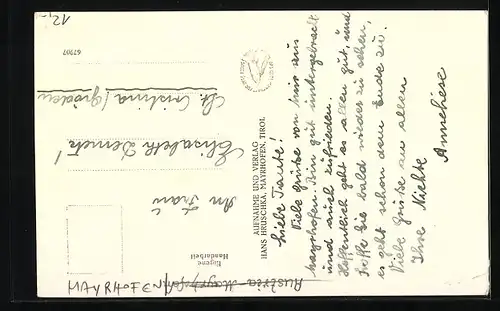 12,-
67907
Liebe Tante!
Viele Grüße von hier aus
Mayrhofen. Bin gut untergebracht
und auch zufrieden.
Hoffentlich geht es allen gut, und
hoffe Sie bald wieder zu sehen,
es geht schon dem Ende zu.
Viele Grüße an allen
Ihre Nichte
Anneliese
AUFNAHME UND VERLAG
HANS HRUSCHKA, MAYRHOFEN, TIROL
Eigene
Handarbeit
An Frau
Elisabeth Demetz!
St. Cristina/Gröden
Austria
MAYRHOFEN